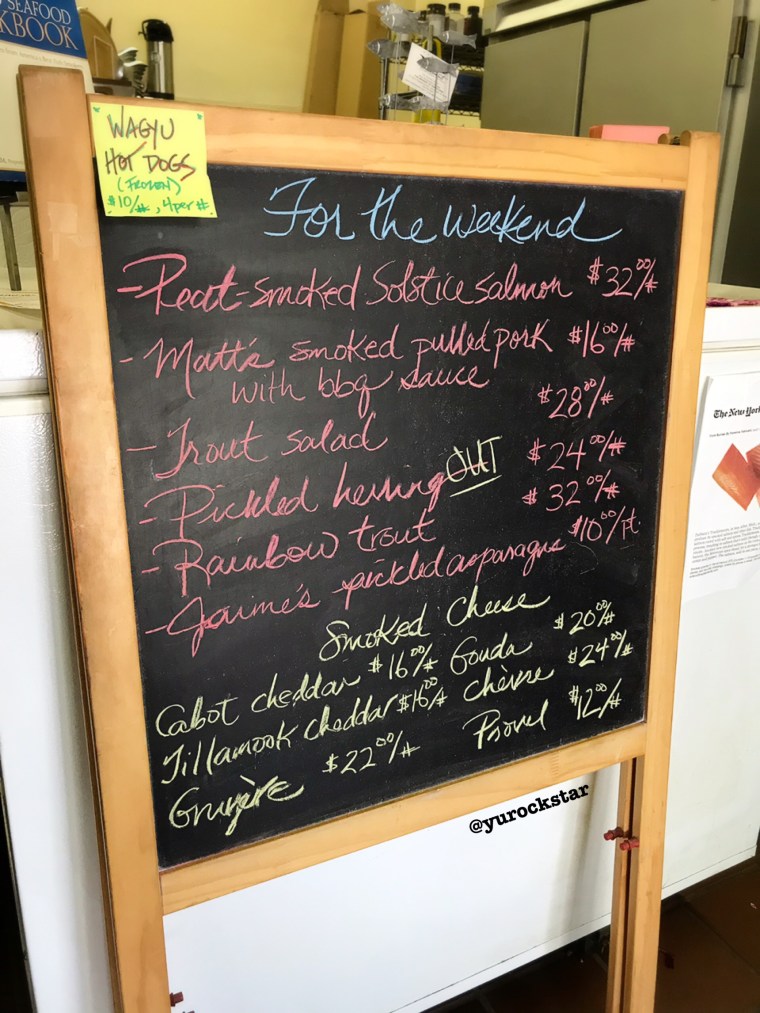 SEAFOOD
KBOOK
WAGYU
HOT DOGS
(FROZEN)
$10/#, 4 per #
For the weekend
- Peat-smoked Solstice salmon $32.00/#
- Matt's smoked pulled pork $16.00/#
with bbq sauce
- Trout salad $28.00/#
- Pickled herring OUT $24.00/#
- Rainbow trout $32.00/#
- Jaime's pickled asparagus $10.00/pt.
Smoked Cheese
Cabot cheddar $16.00/# Gouda $20.00/#
Tillamook cheddar $16.00/# chèvre $24.00/#
Gruyère $22.00/# Provel $12.00/#
The New York
@yurockstar